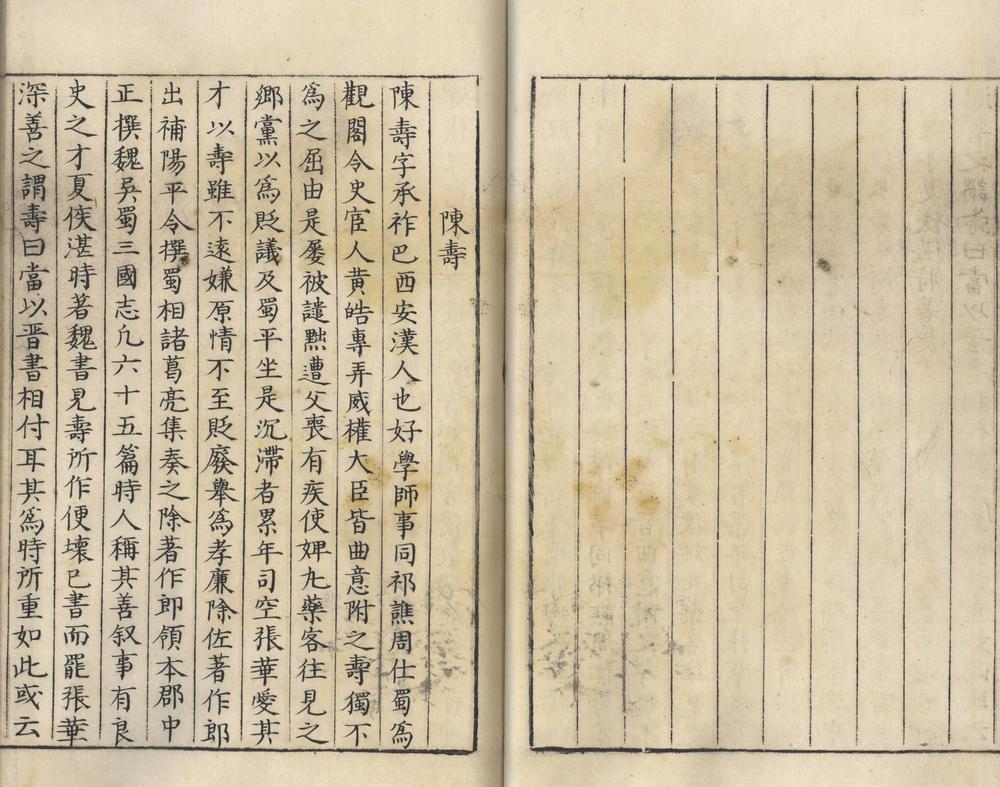 陳壽
陳壽字承祚巴西安漢人也好學師事同祁譙周仕蜀爲
觀閣令史宦人黄皓專弄威權大臣皆曲意附之壽獨不
爲之屈由是屡被譴黜遭父喪有疾使婢丸藥客往見之
鄉黨以爲貶議及蜀平坐是沉滯者累年司空張華愛其
才以壽雖不遠嫌原情不至貶廢舉爲孝廉除佐著作郎
出補陽平令撰蜀相諸葛亮集奏之除著作郎領本郡中
正撰魏吳蜀三國志凢六十五篇時人稱其善叙事有良
史之才夏侯湛時著魏書見壽所作便壞已書而罷張華
深善之謂壽曰當以晋書相付耳其爲時所重如此或云